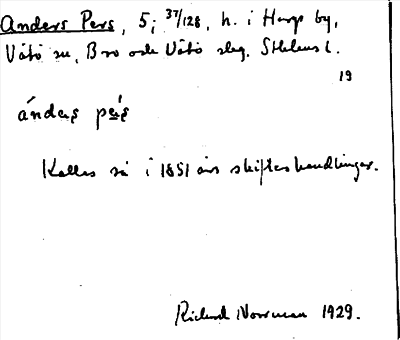 Anders Pers, 5; 37/128, h. i Harg by,
Vätö sn, Bro och Vätö slg. Sthlms l.
19
ándaş pǽ̣ş
Kallas så i 1851 års skifteshandlingar.
Rickard Norrman 1929.